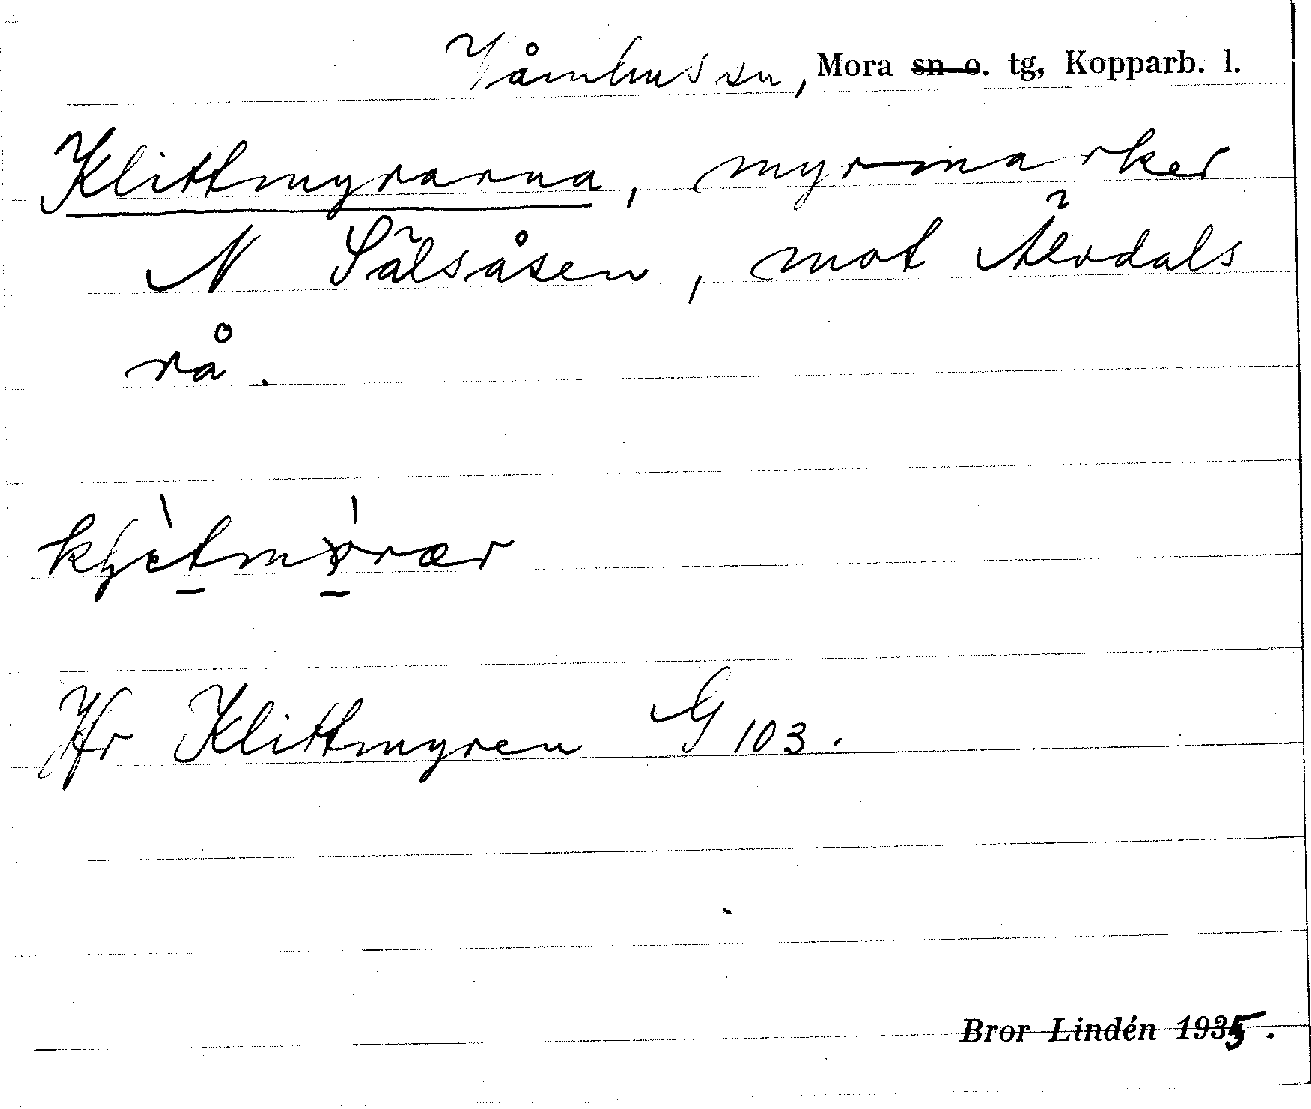 Våmhus sn, Mora sn o. tg, Kopparb. l.
Klittmyrarna, myrmarker
N Sälsåsen, mot Älvdals
rå.
Jfr Klittmyren G 103.
Bror Lindén 1935.